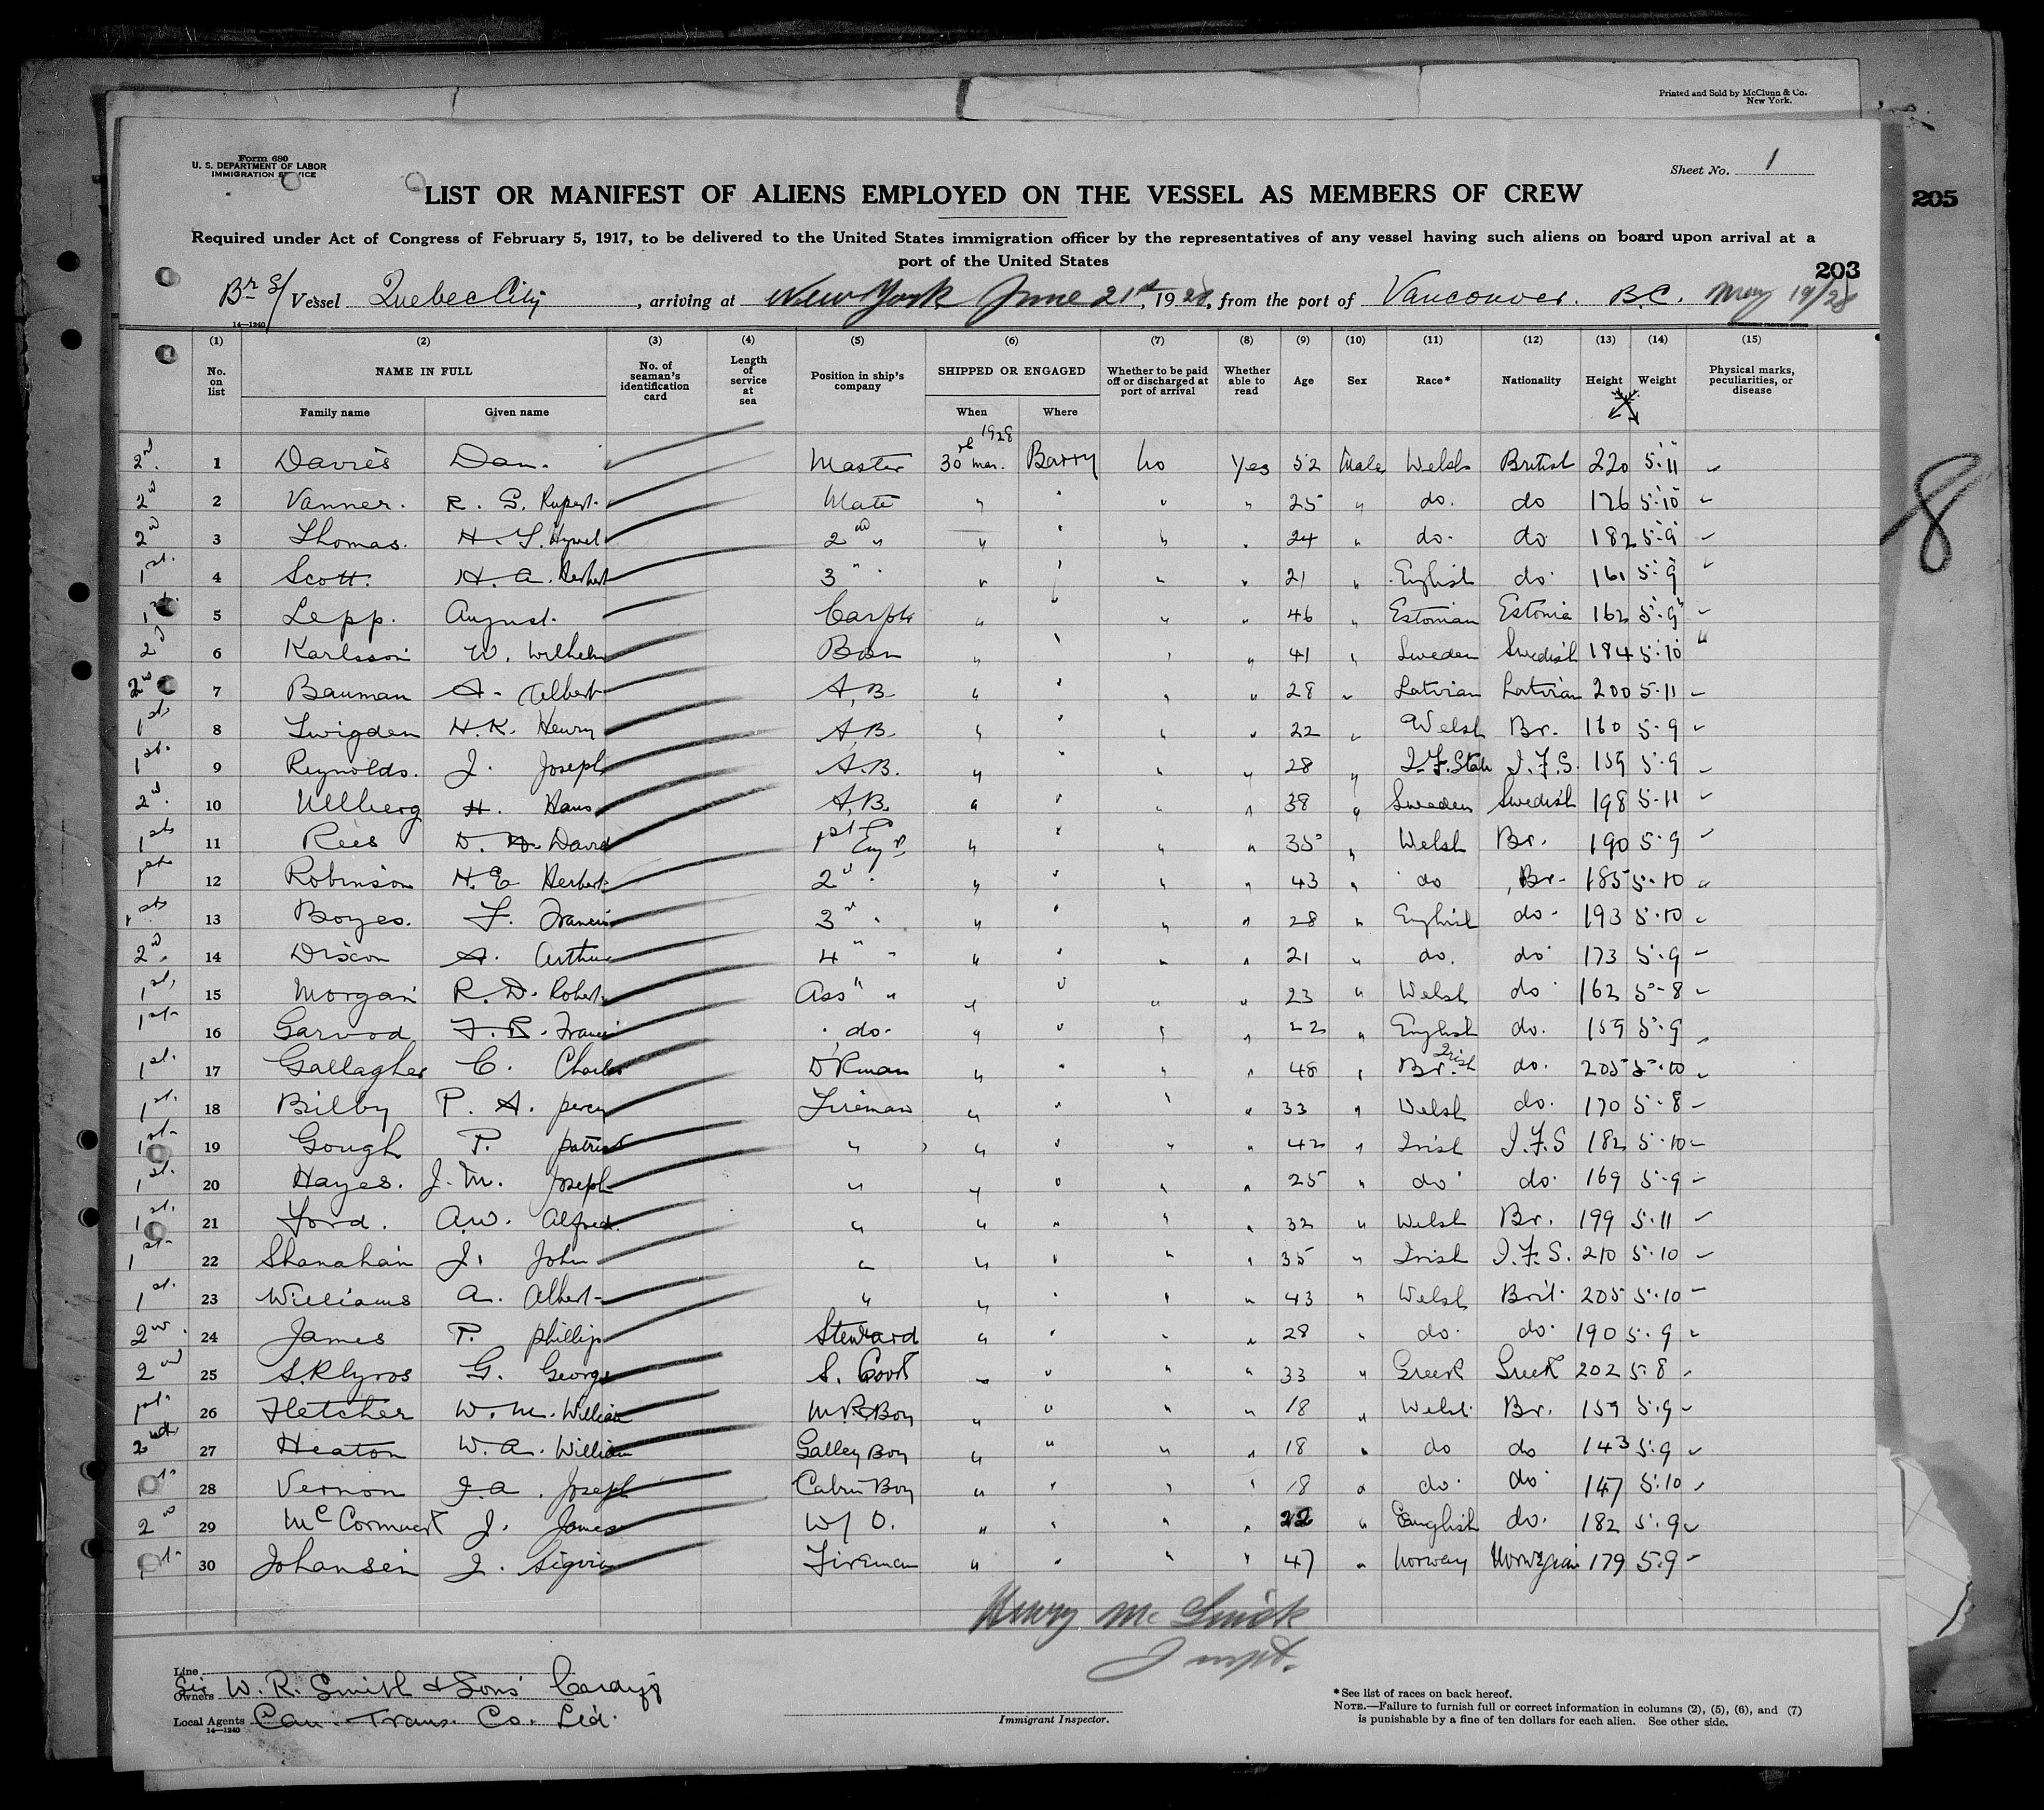 Printed and Sold by McClunn & Co.
New York.
Form 680
U. S. DEPARTMENT OF LABOR
IMMIGRATION SERVICE
Sheet No. 1
LIST OR MANIFEST OF ALIENS EMPLOYED ON THE VESSEL AS MEMBERS OF CREW
205
Required under Act of Congress of February 5, 1917, to be delivered to the United States immigration officer by the representatives of any vessel having such aliens on board upon arrival at a
port of the United States
203
Br S/ Vessel Quebec City, arriving at New York June 21st, 1928, from the port of Vancouver. B.C. May 19/28
14—1240
(1) (2) (3) (4) (5) (6) (7) (8) (9) (10) (11) (12) (13) (14) (15)
No. on list NAME IN FULL No. of seaman's identification card Length of service at sea Position in ship's company SHIPPED OR ENGAGED Whether to be paid off or discharged at port of arrival Whether able to read Age Sex Race* Nationality Height Weight Physical marks, peculiarities, or disease
Family name Given name When Where
1928
2nd. 1 Davies Dan. Master 30th mar. Barry no Yes 52 Male Welsh British 220 5·11
2d 2 Vanner. R. S. Rupert. Mate " " " " 25 " do. do 176 5·10
2d 3 Thomas. H. T. Hywel 2nd " " " " " 24 " do. do 182 5·9
1st. 4 Scott. H. A. Herbert 3 " " " " " 21 " English do. 161 5·9
1st. 5 Lepp. August. " " " " 46 " Estonian Estonia 162 5·9
2d 6 Karlsson W. Wilhelm Bosn " " " " 41 " Sweden Swedish 184 5·10
2d 7 Bauman A. Albert A.B. " " " " 28 " Latvian Latvian 200 5·11
1st 8 Twigden H. K. Henry A.B. " " " " 22 " Welsh Br. 160 5·9
1st. 9 Reynolds. J. Joseph A.B. " " " " 28 " I.F. State I.F.S. 159 5·9
2d. 10 Ullberg H. Hans A.B. " " " " 38 " Sweden Swedish 198 5·11
1st 11 Rees D. David 1st Engr " " " " 35 " Welsh Br. 190 5·9
1st 12 Robinson H. E Herbert 2d " " " " " 43 " do Br. 185 5·10
1st 13 Boyes. F. Francis 3rd " " " " " 28 " English do. 193 5·10
2d. 14 Dixon A. Arthur 4 " " " " " 21 " do. do 173 5·9
1st. 15 Morgan R. D. Robert. Ass" " " " " " 23 " Welsh do 162 5·8
1st. 16 Garvod F. R. Francis do. " " " " 22 " English do. 159 5·9
1st. 17 Gallagher C. Charles D'Kman " " " " 48 " Br. Irish do. 205 5·10
1st. 18 Bilby P. A. percy Fireman " " " " 33 " Welsh do. 170 5·8
1st. 19 Gough P. patrick " " " " " 42 " Irish I.F.S 182 5·10
1st. 20 Hayes. J. M. Joseph " " " " " 25 " do do. 169 5·9
1st. 21 Ford. A.W. Alfred. " " " " " 32 " Welsh Br. 199 5·11
1st. 22 Shanahan J. John " " " " " 35 " Irish I.F.S. 210 5·10
1st. 23 Williams A. Albert " " " " " 43 " Welsh Brit. 205 5·10
2nd. 24 James P. phillip Steward " " " " 28 " do. do. 190 5·9
2nd 25 S.Klyros G. George S. Cook " " " " 33 " Greek Greek 202 5·8
1st. 26 Fletcher W. M. William M.R. Boy " " " " 18 " Welsh. Br. 159 5·9
2nd. 27 Heaton W. A. William Galley Boy " " " " 18 " do do 143 5·9
28 Vernon J. A. Joseph Cabin Boy " " " " 18 " do. do 147 5·10
2d 29 J. James W/O. " " " " 22 " English do. 182 5·9
30 Johansen J. Fireman " " " " 47 " Norway Norwegian 179 5·9
8
Line
Owners Sir W. R. Smith & Sons Cardiff
Local Agents Can. Trans. Co. Ltd.
14—1240
Immigrant Inspector.
*See list of races on back hereof.
NOTE.—Failure to furnish full or correct information in columns (2), (5), (6), and (7)
is punishable by a fine of ten dollars for each alien. See other side.